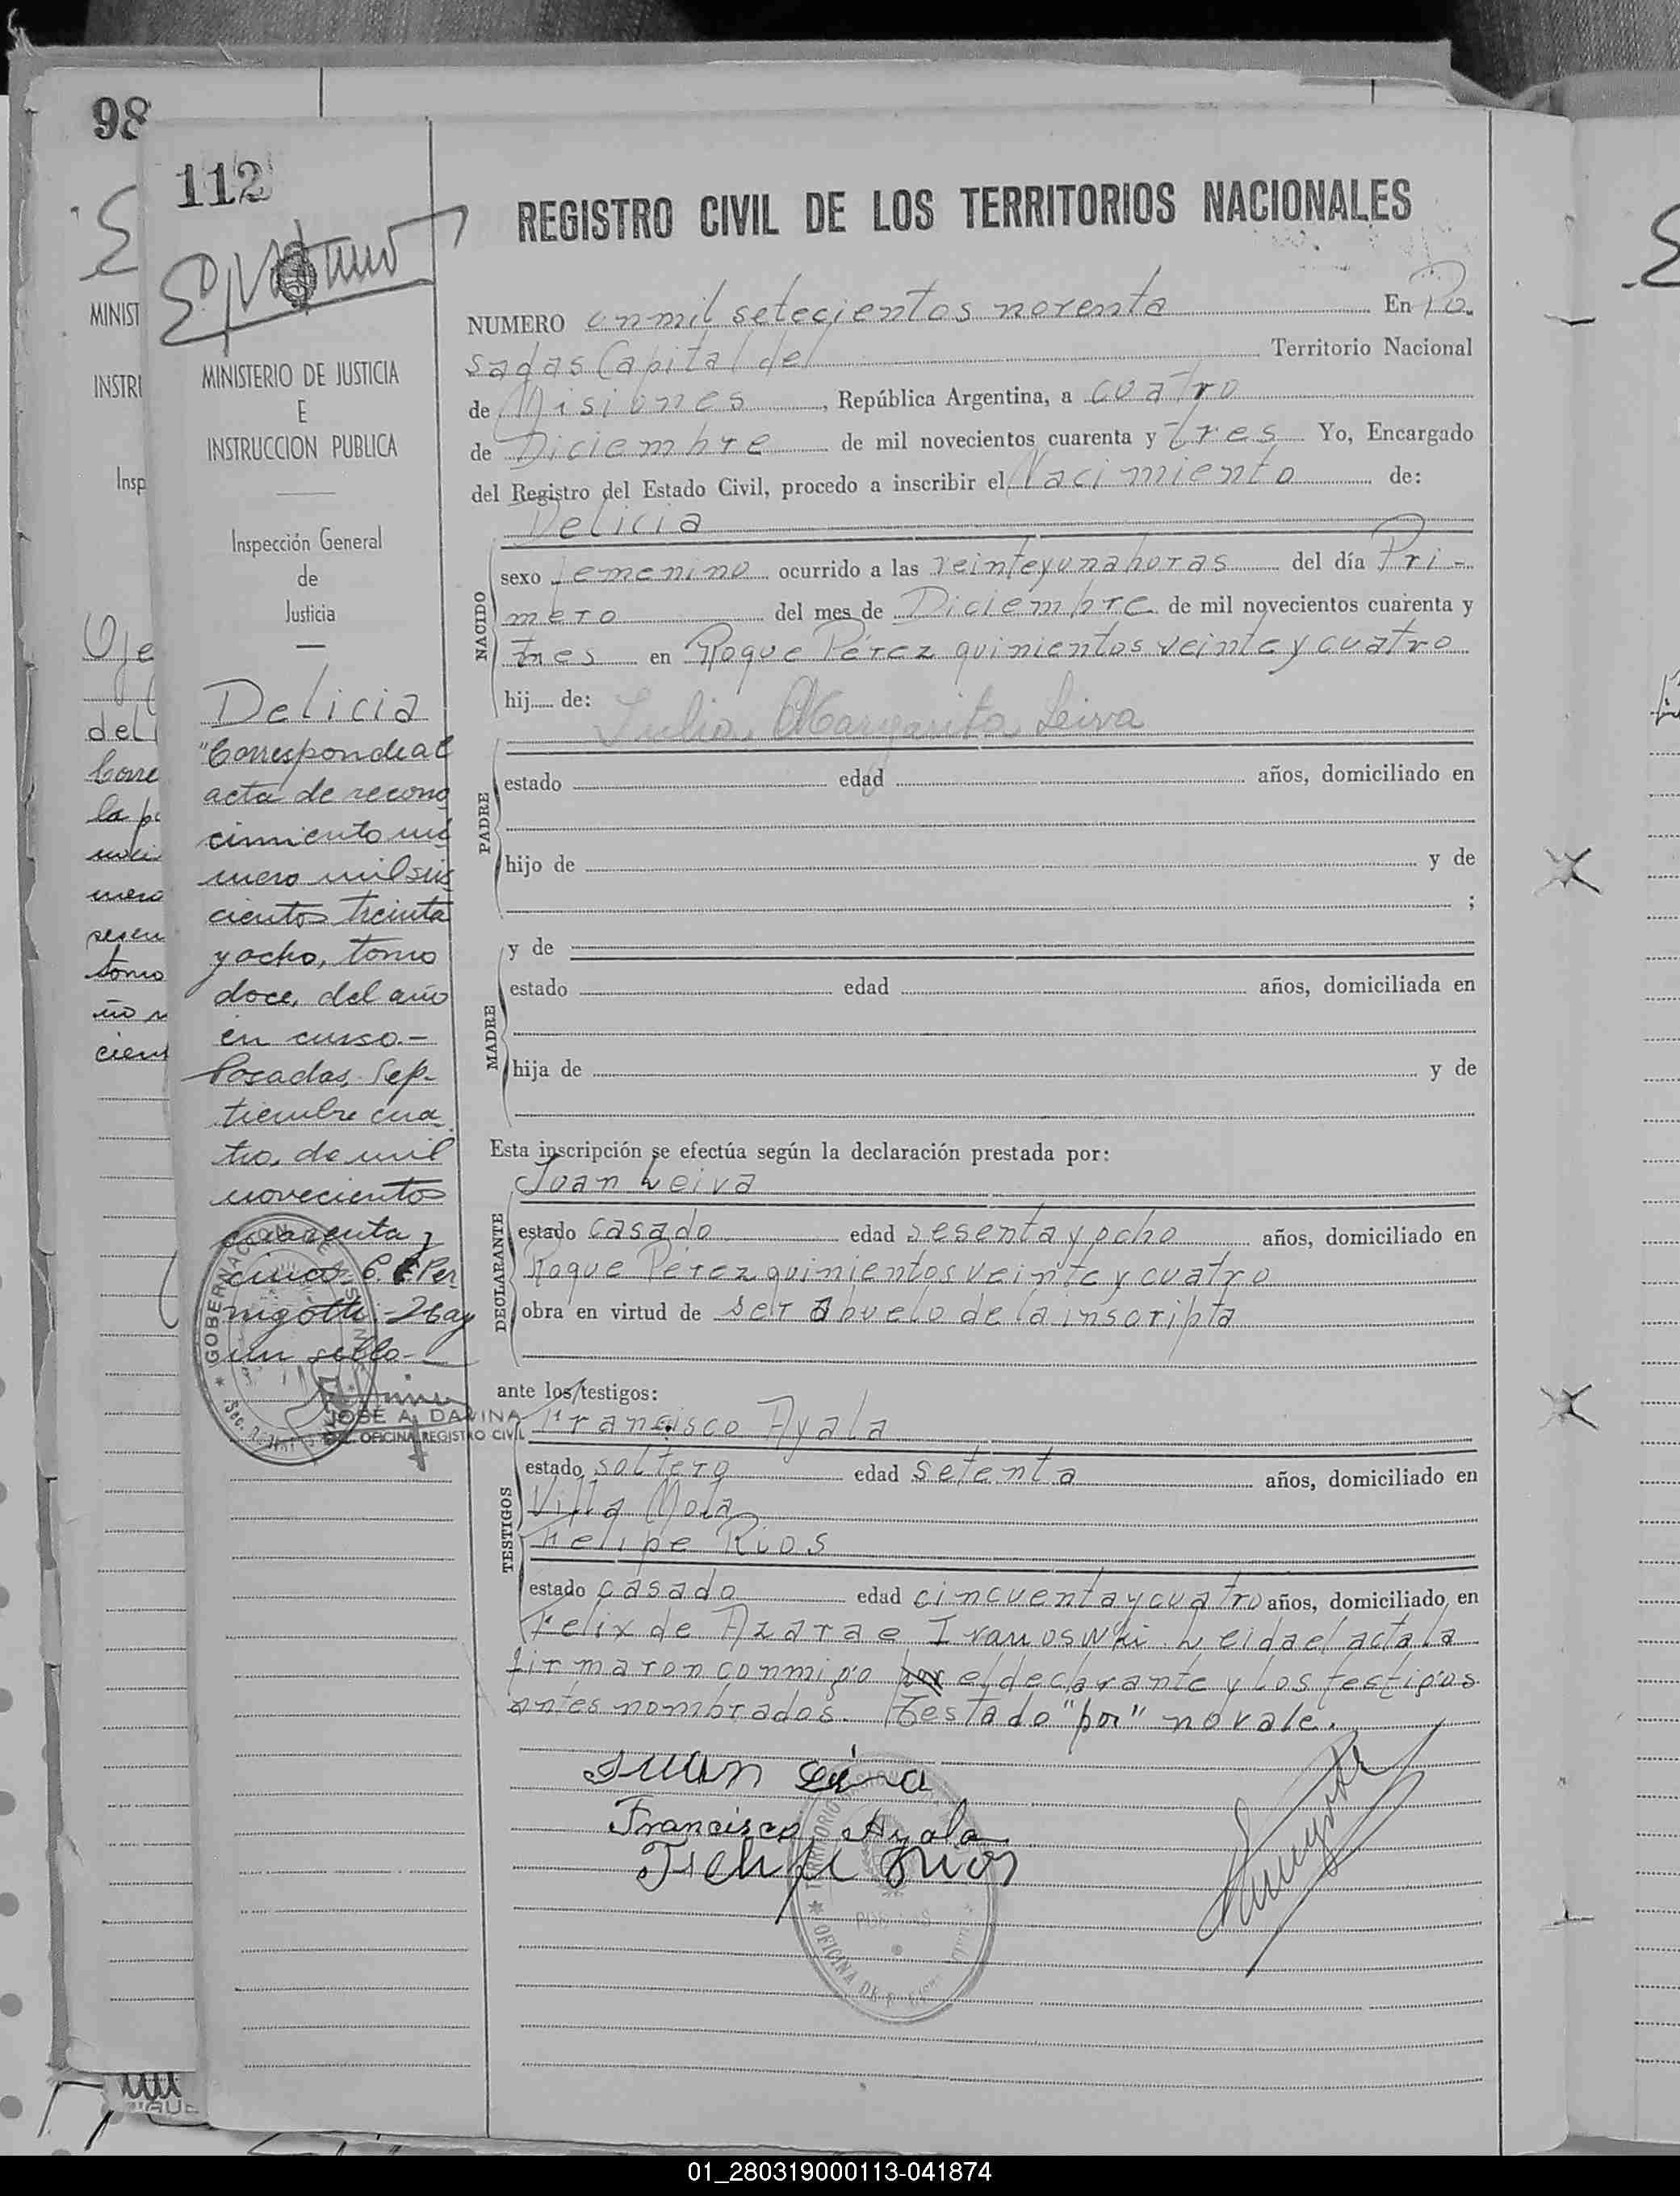 98
112
MINISTERIO DE JUSTICIA
E
INSTRUCCION PUBLICA
Inspección General
de
Justicia
Delicia
"Corresponde al
acta de recono
cimiento nú
mero mil seis
cientos treinta
y ocho, tomo
doce, del año
en curso.-
Posadas, Sep-
tiembre cua
tro, de mil
novecientos
cuarenta y
cinco-
-Hay
un sello-
JOSE A. DAVINA
OFICINA REGISTRO CIVIL
REGISTRO CIVIL DE LOS TERRITORIOS NACIONALES
NUMERO un mil setecientos noventa En Po-
sadas Capital del Territorio Nacional
de Misiones, República Argentina, a cuatro
de Diciembre de mil novecientos cuarenta y tres Yo, Encargado
del Registro del Estado Civil, procedo a inscribir el Nacimiento de:
Delicia
NACIDO
sexo femenino ocurrido a las veinteyuna horas del día Pri-
mero del mes de Diciembre de mil novecientos cuarenta y
tres en Roque Pérez quinientos veinte y cuatro
hij de:
Julia Margarita Leiva
PADRE
estado edad años, domiciliado en
hijo de y de
;
y de
MADRE
estado edad años, domiciliada en
hija de y de
Esta inscripción se efectúa según la declaración prestada por:
Juan Leiva
DECLARANTE
estado casado edad sesenta y ocho años, domiciliado en
Roque Pérez quinientos veinte y cuatro
obra en virtud de ser abuelo de la inscripta
ante los testigos:
Francisco Ayala
TESTIGOS
estado soltero edad setenta años, domiciliado en
Villa Mola
Felipe Rios
estado casado edad cincuenta y cuatro años, domiciliado en
Felix de Azara e Iranoswki. Leida el acta la
firmaron conmigo por el declarante y los testigos
antes nombrados. Testado "por" no vale.
Juan Leiva
Francisco Ayala
Felipe Rios
01_280319000113-041874